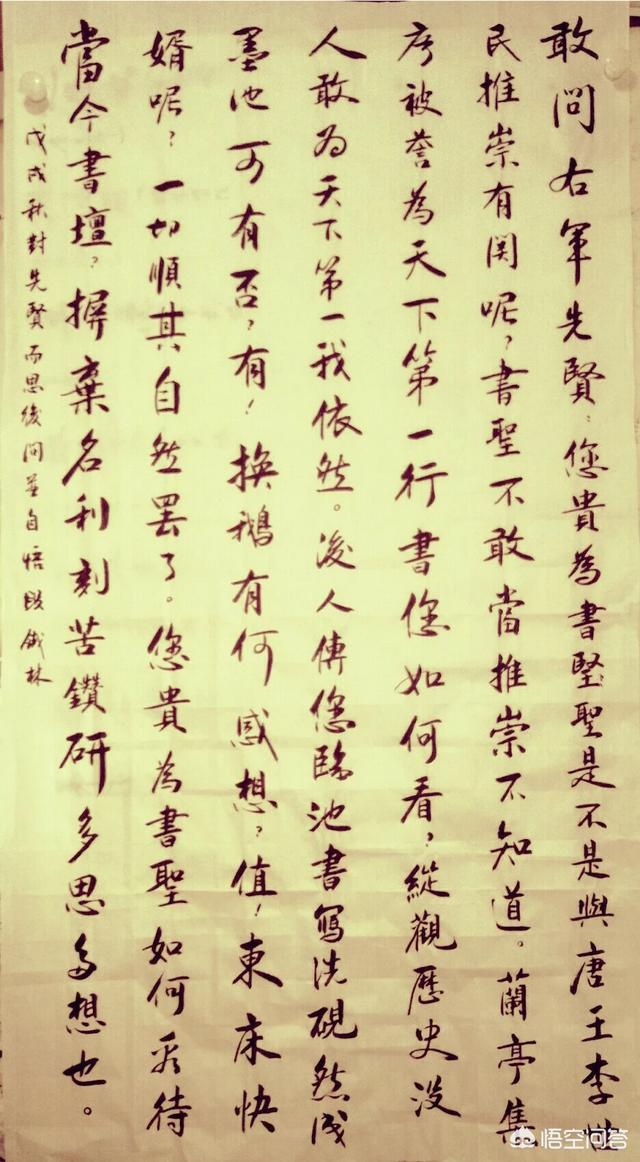 敢問右軍先賢：您貴為書堅聖是不是與唐王李世
民推崇有関呢？書聖不敢當推崇不知道。蘭亭集
序被誉為天下第一行書您如何看？縱觀歷史没
人敢为天下第一我依然。後人傳您臨池書寫洗硯然成
墨池可有否？有！換鵝有何感想？值！東床快
婿呢？一切順其自然罢了。您貴為書聖如何看待
當今書壇？摒棄名利刻苦鑽研多思多想也。
戊戌秋對先賢而思後問並自悟
林
悟空问答